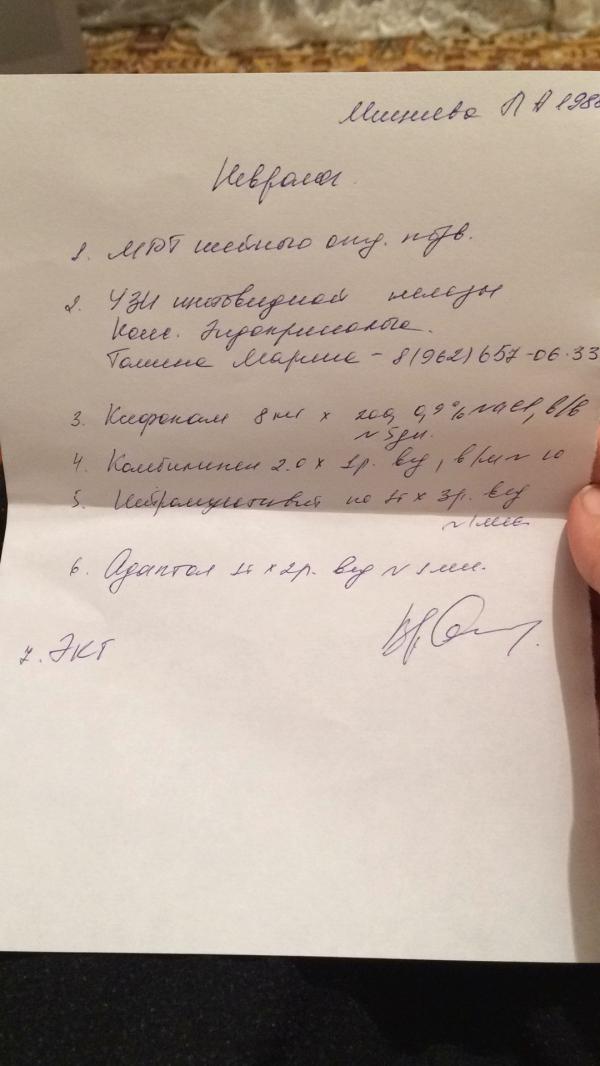 Л А 198
Невролог.
1. МРТ шейного отд. позв.
2. УЗИ щитовидной железы
Конс. Эндокринолога.
Марина - 8(962)657-06-33
3. Ксефокам 8 мг x 200,0 0,9% NaCl, в/в
N 5 дн.
4. Комбилипен 2.0 x 1р. в/д, в/м N 10
5. Нейромультивит по 1т x 3р. в/д
N 1 мес
6. Адаптол 1т x 2р. в/д N 1 мес.
7. ЭКГ